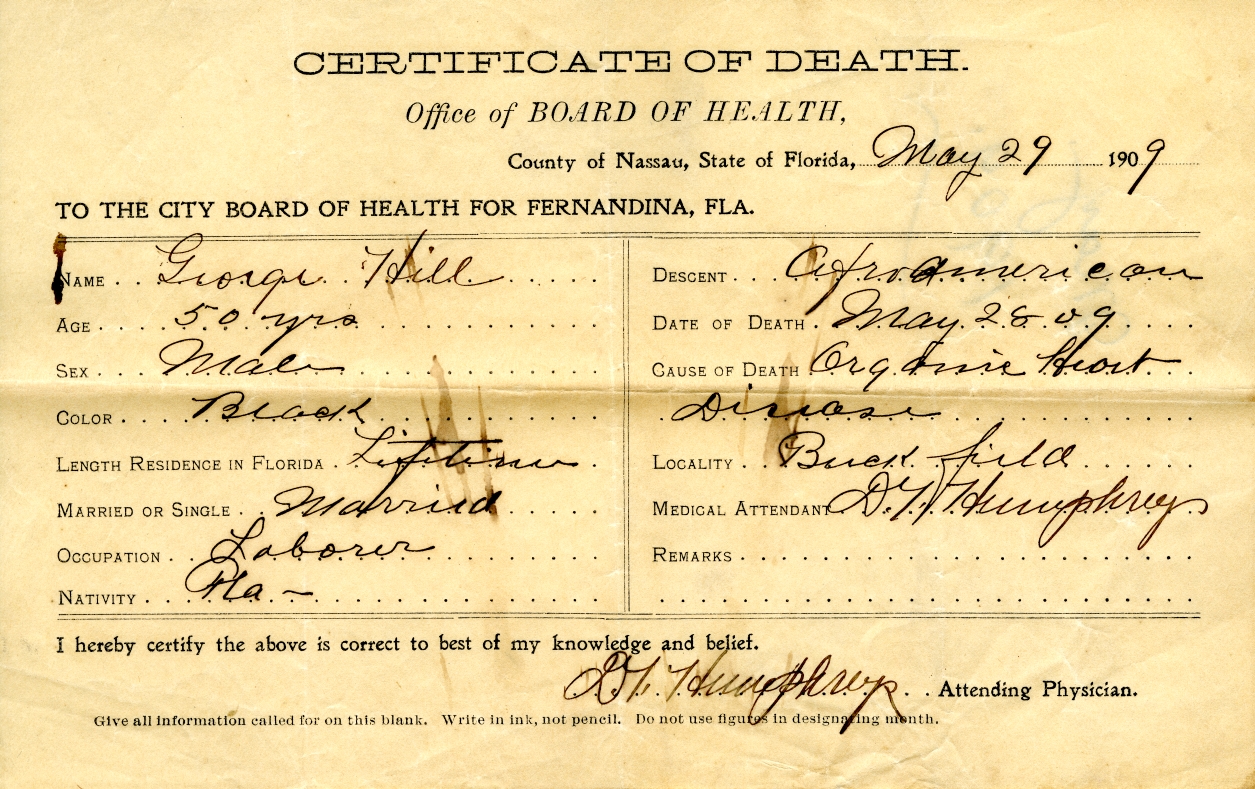 CERTIFICATE OF DEATH.
Office of BOARD OF HEALTH,
County of Nassau, State of Florida, May 29 1909
TO THE CITY BOARD OF HEALTH FOR FERNANDINA, FLA.
NAME George Hill
AGE 50 yrs
SEX Male
COLOR Black
LENGTH RESIDENCE IN FLORIDA Lifetime
MARRIED OR SINGLE Married
OCCUPATION Laborer
NATIVITY Fla -
DESCENT Afro American
DATE OF DEATH May 28 09
CAUSE OF DEATH Organic Heart
Disease
LOCALITY Buck field
MEDICAL ATTENDANT Humphreys
REMARKS
I hereby certify the above is correct to best of my knowledge and belief.
Humphreys Attending Physician.
Give all information called for on this blank. Write in ink, not pencil. Do not use figures in designating month.